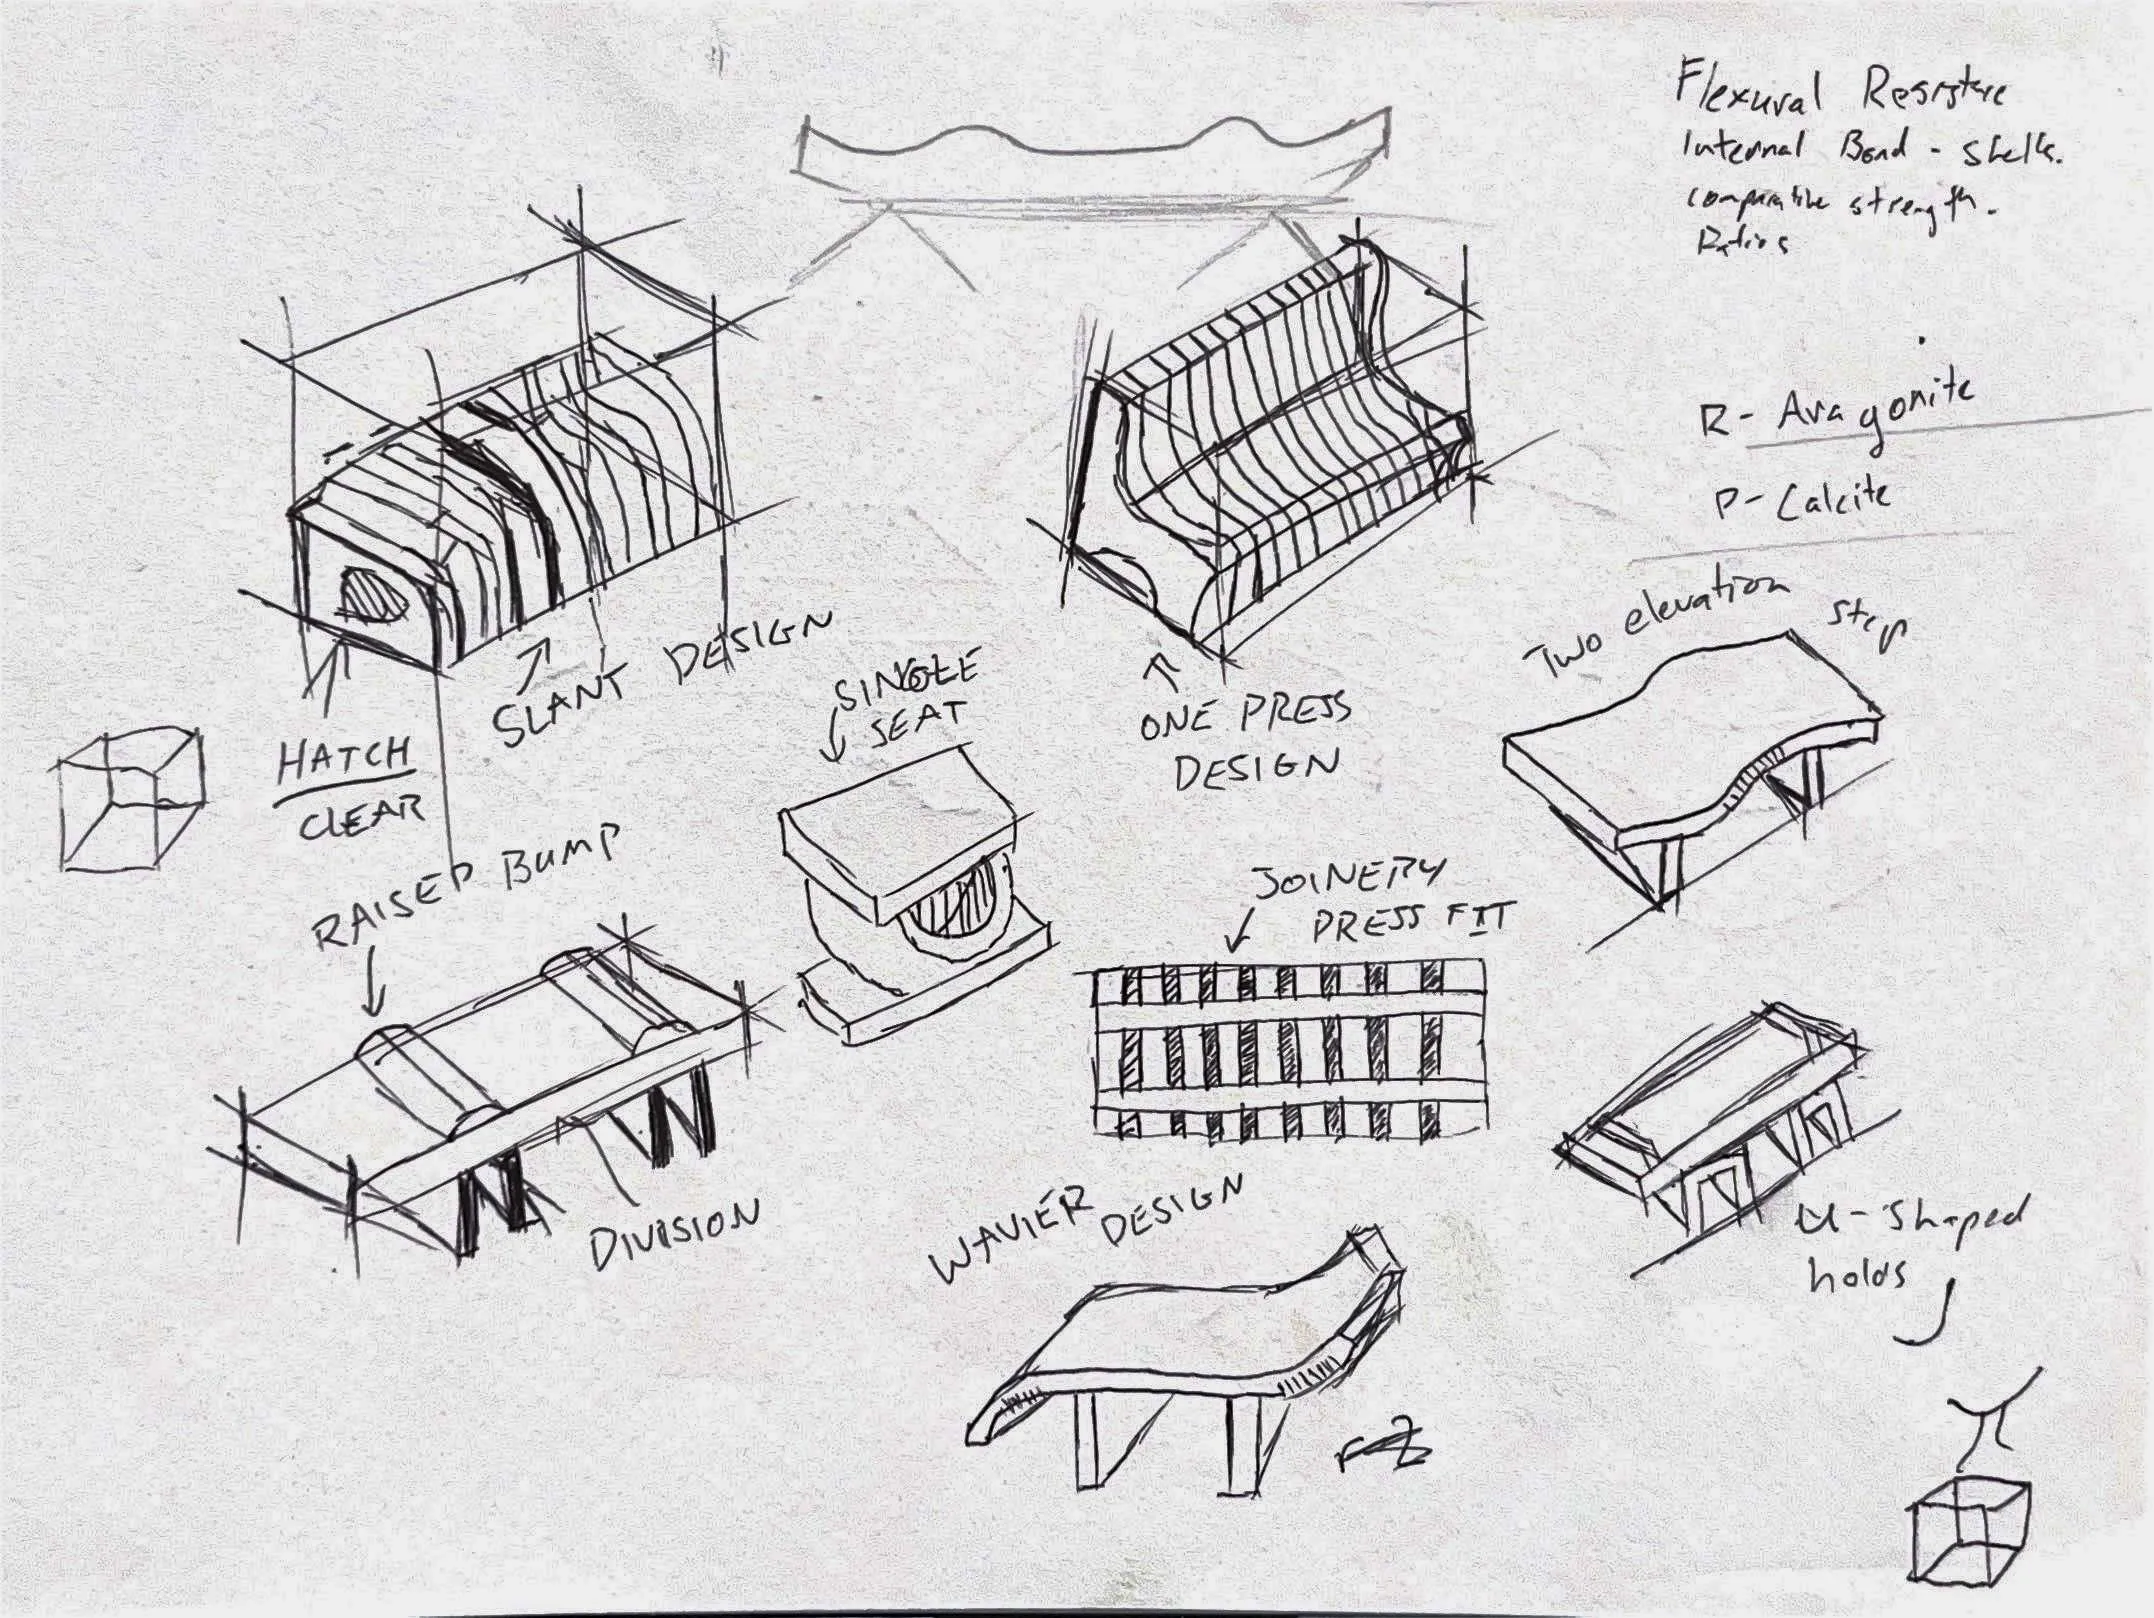 Flexural Resistance
Internal Bond - Shells.
comparative strength.
Ratios
R - Aragonite
P - Calcite
Two elevation step
SLANT DESIGN
HATCH
CLEAR
SINGLE
SEAT
ONE PRESS
DESIGN
RAISED BUMP
JOINERY
PRESS FIT
DIVISION
WAVIER DESIGN
U-Shaped
holds